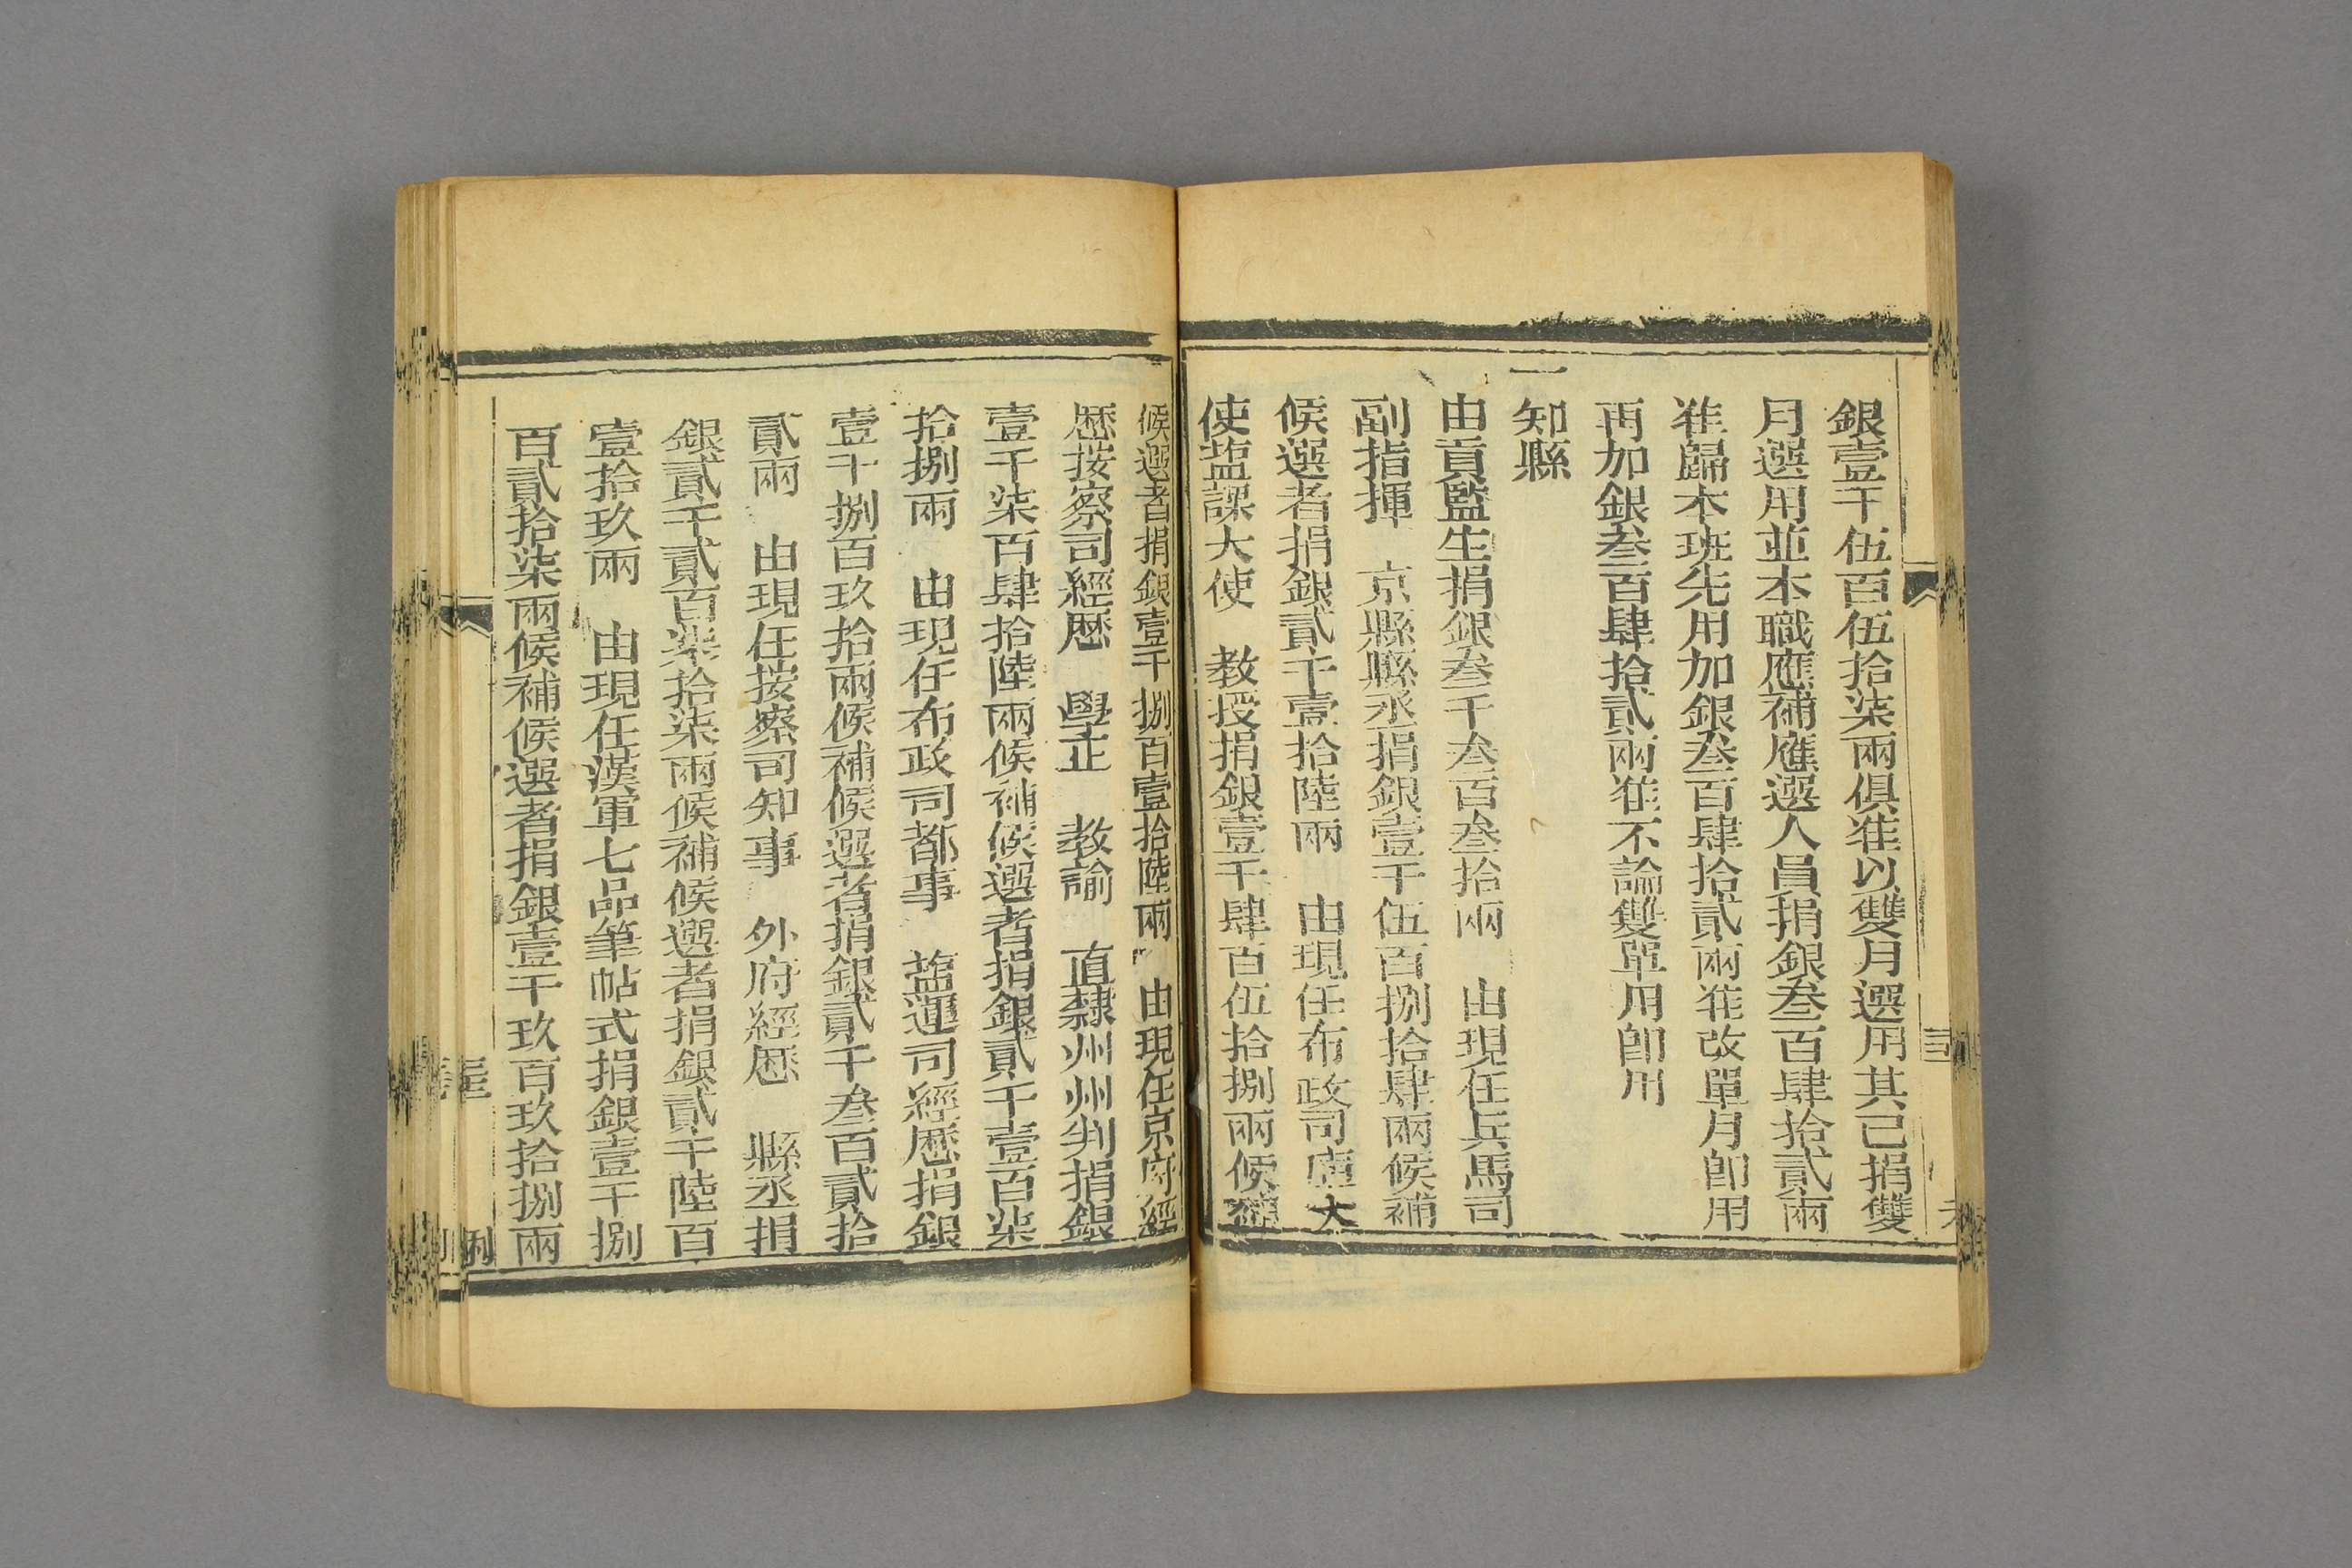 銀壹千伍百伍拾柒兩俱准以雙月選用其已捐雙
月選用並本職應補應選人員捐銀叁百肆拾貳兩
准歸本班先用加銀叁百肆拾貳兩准改單月卽用
再加銀叁百肆拾貳兩准不論雙單用卽用
一知縣
由貢監生捐銀叁千叁百叁拾兩　由現任兵馬司
副指揮　京縣縣丞捐銀壹千伍百捌拾肆兩候補
候選者捐銀貳千壹拾陸兩　由現任布政司庫大
使塩課大使　教授捐銀壹千肆百伍拾捌兩候補
候選者捐銀壹千捌百壹拾陸兩　由現任京府經
歷按察司經歷　學正　教諭　直隸州州判捐銀
壹千柒百肆拾陸兩候補候選者捐銀貳千壹百柒
拾捌兩　由現任布政司都事　塩運司經歷捐銀
壹千捌百玖拾兩候補候選者捐銀貳千叁百貳拾
貳兩　由現任按察司知事　外府經歷　縣丞捐
銀貳千貳百柒拾柒兩候補候選者捐銀貳千陸百
壹拾玖兩　由現任漢軍七品筆帖式捐銀壹千捌
百貳拾柒兩候補候選者捐銀壹千玖百玖拾捌兩